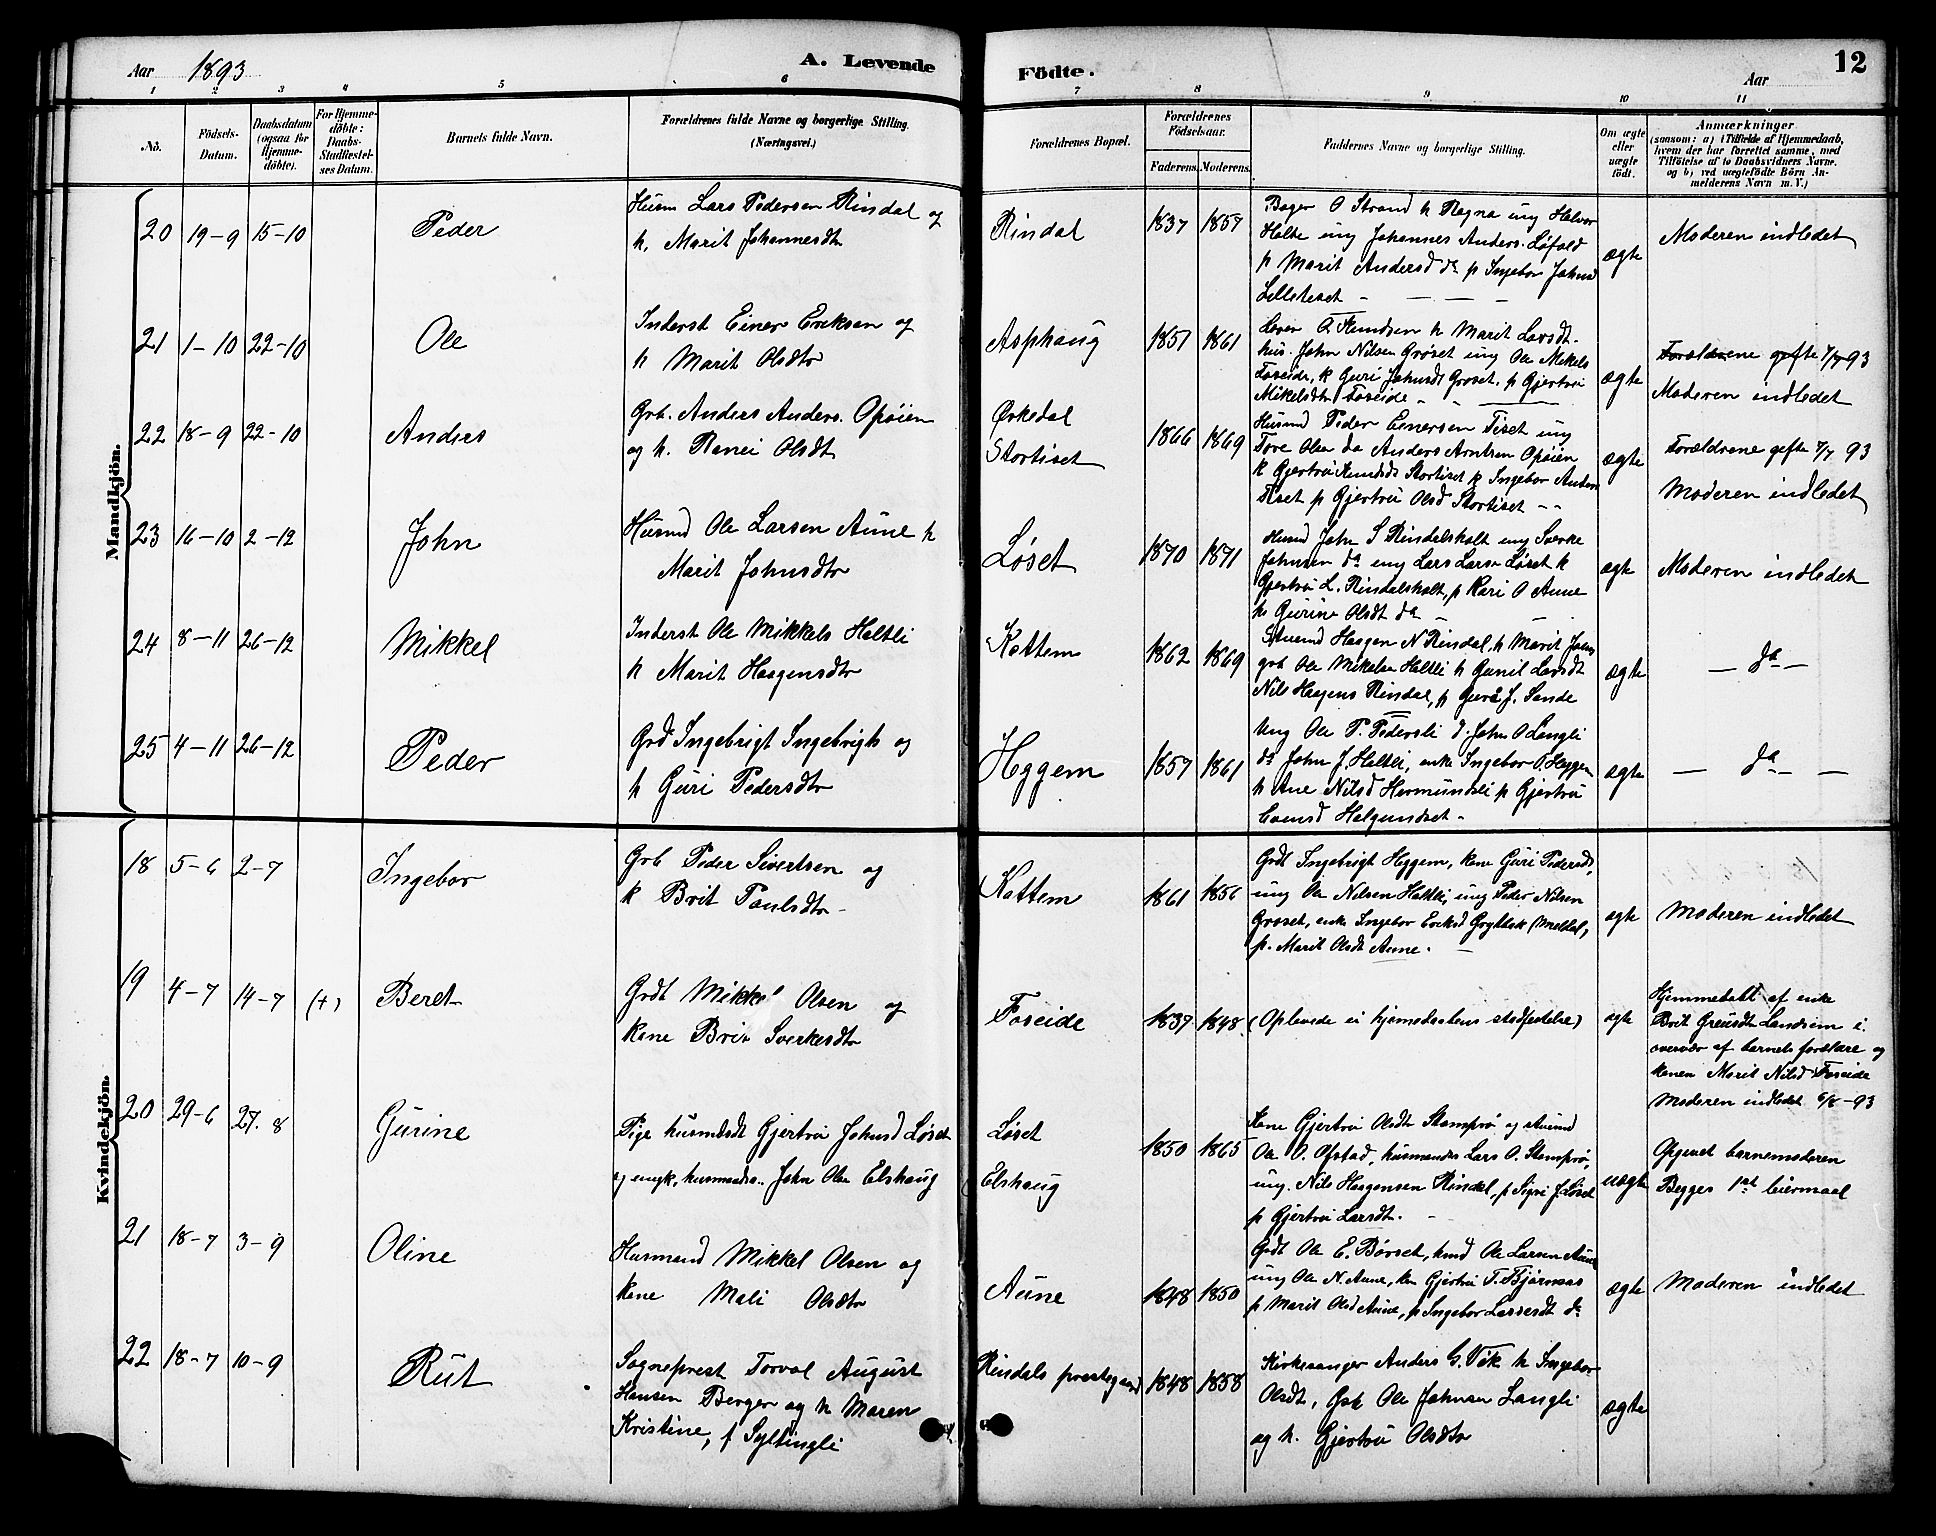 Aar 1893
A. Levende
Födte.
Aar
12
1 2 3 4 5 6 7 8 9 10 11
No.
Födsels-Datum.
Daabsdatum (ogsaa for Hjemme-döbte).
For Hjemme-döbte: Daabs-Stadfæstel-ses Datum.
Barnets fulde Navn.
Forældrenes fulde Navne og borgerlige Stilling. (Næringsvei.)
Forældrenes Bopæl.
Forældrenes Födselsaar.
Faderens. Moderens.
Faddernes Navne og borgerlige Stilling.
Om ægte eller uægte födt.
Anmærkninger.
(saasom: a) i Tilfælde af Hjemmedaab,
hvem der har forrettet samme, med
Tilföielse af to Daabsvidners Navne.
og b) ved uægtefödte Börn An-
melderens Navn m. V.)
Mandkjön.
20 19-9 15-10 Peder
Husm Lars Pedersen Rindal og
k. Marit Johannesdtr
Rindal 1837 1857
Bager O Strand k Ragna ung Halvor
Holte ung Johannes Anders. Løfald
p Marit Andersd do p Ingebor Johnsd
Lilleteset
ægte
Moderen indledet
21 1-10 22-10 Ole
Inderst Einer Eriksen og
k Marit Olsdtr
Asphaug 1851 1861
O. Knudsen k Marit Larsdt.
hus. John Nilsen Grøset ung Ole Mikels
Foseide, k Guri Johnsdt Groset, p Gjertrú
Mikelsdtr Foseide
ægte
Forældrene gefte 7/7 93
Moderen indledet
22 18-9 22-10 Anders
Grb. Anders Anders. Opøien
og k. Ranei Olsdt
Ørkedal
Stortiset
1866 1869
Husmd Peder Einersen Tiset ung
Tore Olsen do Anders Arntsen Opøien
k Gjertrú Knudsdt Stortiset k Ingebor Anders
Tiset p Gjertrú Olsd Stortiset
ægte
Forældrene gefte 7/7 93
Moderen indledet
23 16-10 2-12 John
Husmd Ole Larsen Aune k
Marit Johnsdtr
Løset 1870 1871
Husmd John S Rindalsholt ung Sverke
Johnsen do ung Lars Larsen Løset k
Gjertrú L. Rindalsholt, p Kari O Aune
k. Gurine Olsdt do
ægte
Moderen indledet
24 8-11 26-12 Mikkel
Inderst Ole Mikkels Holtli
k Marit Haagensdtr
Kattem 1862 1869
Haagen N Rindal, k Marit Johns
grb Ole Mikelsen Holtli k Gunil Larsdt
Nils Haagens Rindal, p Guri J. Sande
ægte
- do -
25 4-11 26-12 Peder
Grd Ingebrigt Ingebrigts og
k Guri Pedersdtr
Heggem 1857 1861
Ung Ole P. Pedersli d. John O Langli
do John J. Holtli, enke Ingebor O. Heggem
k Ane Nilsd Hermundsli p Gjertrú
Evensd Helgundset
ægte
- do -
Kvindekjön.
18 5-6 2-7 Ingebor
Grb Peder Sivertsen og
k Brit Paulsdtr
Kattem 1861 1856
Grdt Ingebrigt Heggem, kone Guri Pedersd,
ung Ole Nilsen Holtli, ung Peder Nilsen
Groset, enke Ingebor Eriksd Grytbak (Meldal),
p. Marit Olsdt Aune.
egte
Moderen indledet
19 4-7 14-7 (+) Beret
Grdt Mikkel Olsen og
kone Brit Sverkesdtr
Foseide 1837 1848
(Oplevede ei hjemedaabens stadfestelse)
egte
Hjemmedøbt af enke
Brit Greusdt Landsem i
overvær af barnets forældre og
konen Marit Nilsd Foseide
Moderen indledet 6/8-93
20 29-6 27.8 Gurine
Pige husmdsdt Gjertrú Johnsd Løset
og ungk. husmandss. John Olsen Elshaug
Løset
Elshaug
1850 1865
Kone Gjertrú Olsdt Stomprø og
Ole O. Øfstad, husmandss Lars O. Stomprø,
ung. Nils Haagensen Rindal, p Sigri J. Løset
p Gjertrú Larsdt.
uægte
Opgivet barnemoderen
Begges 1st leiermaal
21 18-7 3-9 Oline
Husmand Mikkel Olsen og
kone Mali Olsdtr
Aune 1848 1850
Grdt Ole E. Børset, hmd Ole Larsen Aune
ung Ole N. Aune, kon Gjertrú T. Bjørnaas
p Marit Olsd Aune, p Ingebor Larsesdt do
ægte
Moderen indledet
22 18-7 10-9 Rut
Sogneprest Torval August
Hansen Berger og k Maren
Kristine, f Syltingli
Rindals prestegaard 1848 1858
Kirkesanger Anders G. Vik k Ingebor
Olsdt, Gsk Ole Johnsen Langli
og k. Gjertrú Olsdtr
ægte